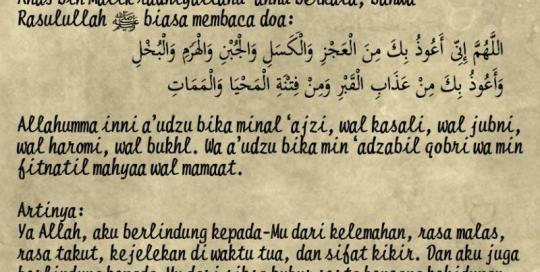 Rasulullah ﷺ biasa membaca doa:
اللَّهُمَّ إِنِّى أَعُوذُ بِكَ مِنَ الْعَجْزِ وَالْكَسَلِ وَالْجُبْنِ وَالْهَرَمِ وَالْبُخْلِ
وَأَعُوذُ بِكَ مِنْ عَذَابِ الْقَبْرِ وَمِنْ فِتْنَةِ الْمَحْيَا وَالْمَمَاتِ
Allahumma inni a'udzu bika minal 'ajzi, wal kasali, wal jubni,
wal haromi, wal bukhl. Wa a'udzu bika min 'adzabil qobri wa min
fitnatil mahyaa wal mamaat.
Artinya:
Ya Allah, aku berlindung kepada-Mu dari kelemahan, rasa malas,
rasa takut, kejelekan di waktu tua, dan sifat kikir. Dan aku juga